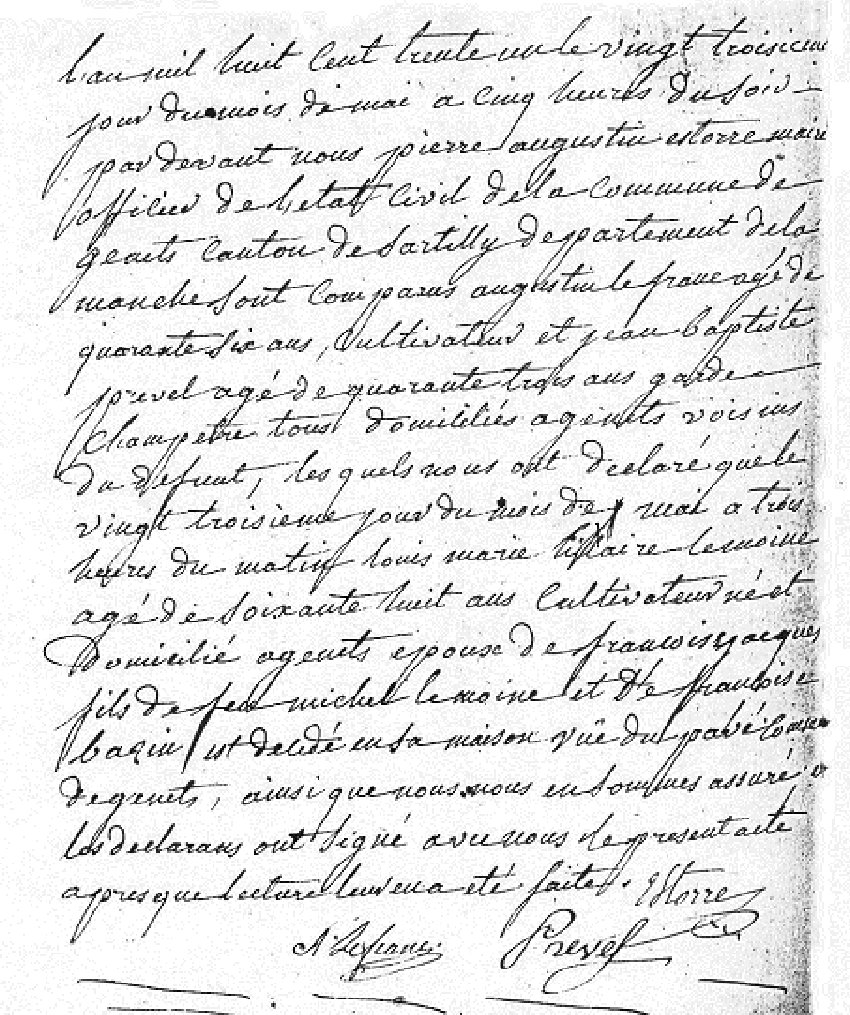 l'an mil huit cent trente un le vingt troisieme
jour du mois de mai a cinq heures du soir
par devant nous pierre augustin estorre maire
officier de l'etat civil de la commune de
genets canton de Sartilly departement de la
manche sont comparus augustin le franc agé de
quarante six ans, cultivateur et jean baptiste
prevel agé de quarante trois ans garde
champetre tous domiciliés a genets voisins
du defunt, les quels nous ont declaré que le
vingt troisieme jour du mois de mai a trois
heures du matin louis marie hillaire lemoine
agé de soixante huit ans cultivateur né et
domicilié a genets epoux de francoise jacques
fils de feu michel lemoine et de francoise
bazin est decedé en sa maison rüe du pavé
de genets, ainsi que nous nous en sommes assuré et
les declarans ont signé avec nous le present acte
apres que lecture leur en a eté faite. Estorre
A Lefranc Prevel